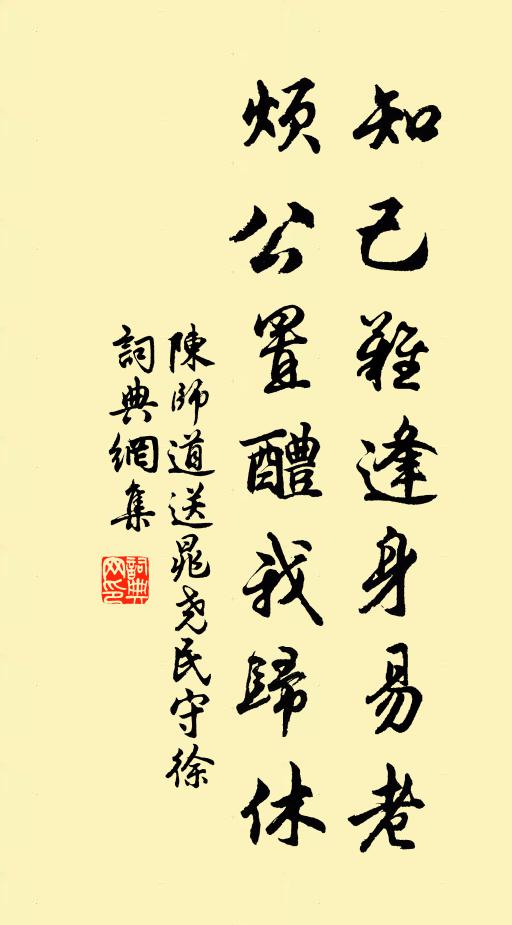 知己難逢身易老
煩公置醴我歸休
陳師道送晁堯民守徐
詞典網集
詞典網印